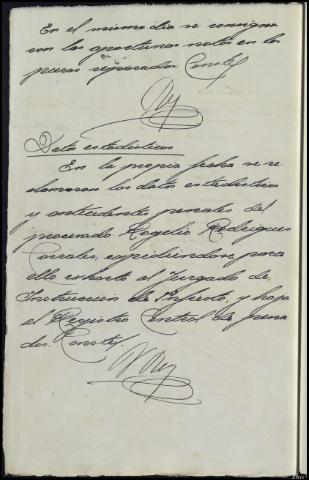 En el mismo dia se consignaron las oportunas notas en las
piezas separadas. Consté.
Rey
Datos estadísticos
En la propia fecha se reclamaron los datos estadísticos
y antecedentes penales del
procesado Rogelio Rodriguez
Corrales, expidiéndose para
ello exhorto al Juzgado de
Instrucción de Infiesto, y hoja
al Registro Central de penados. Consté.
Rey